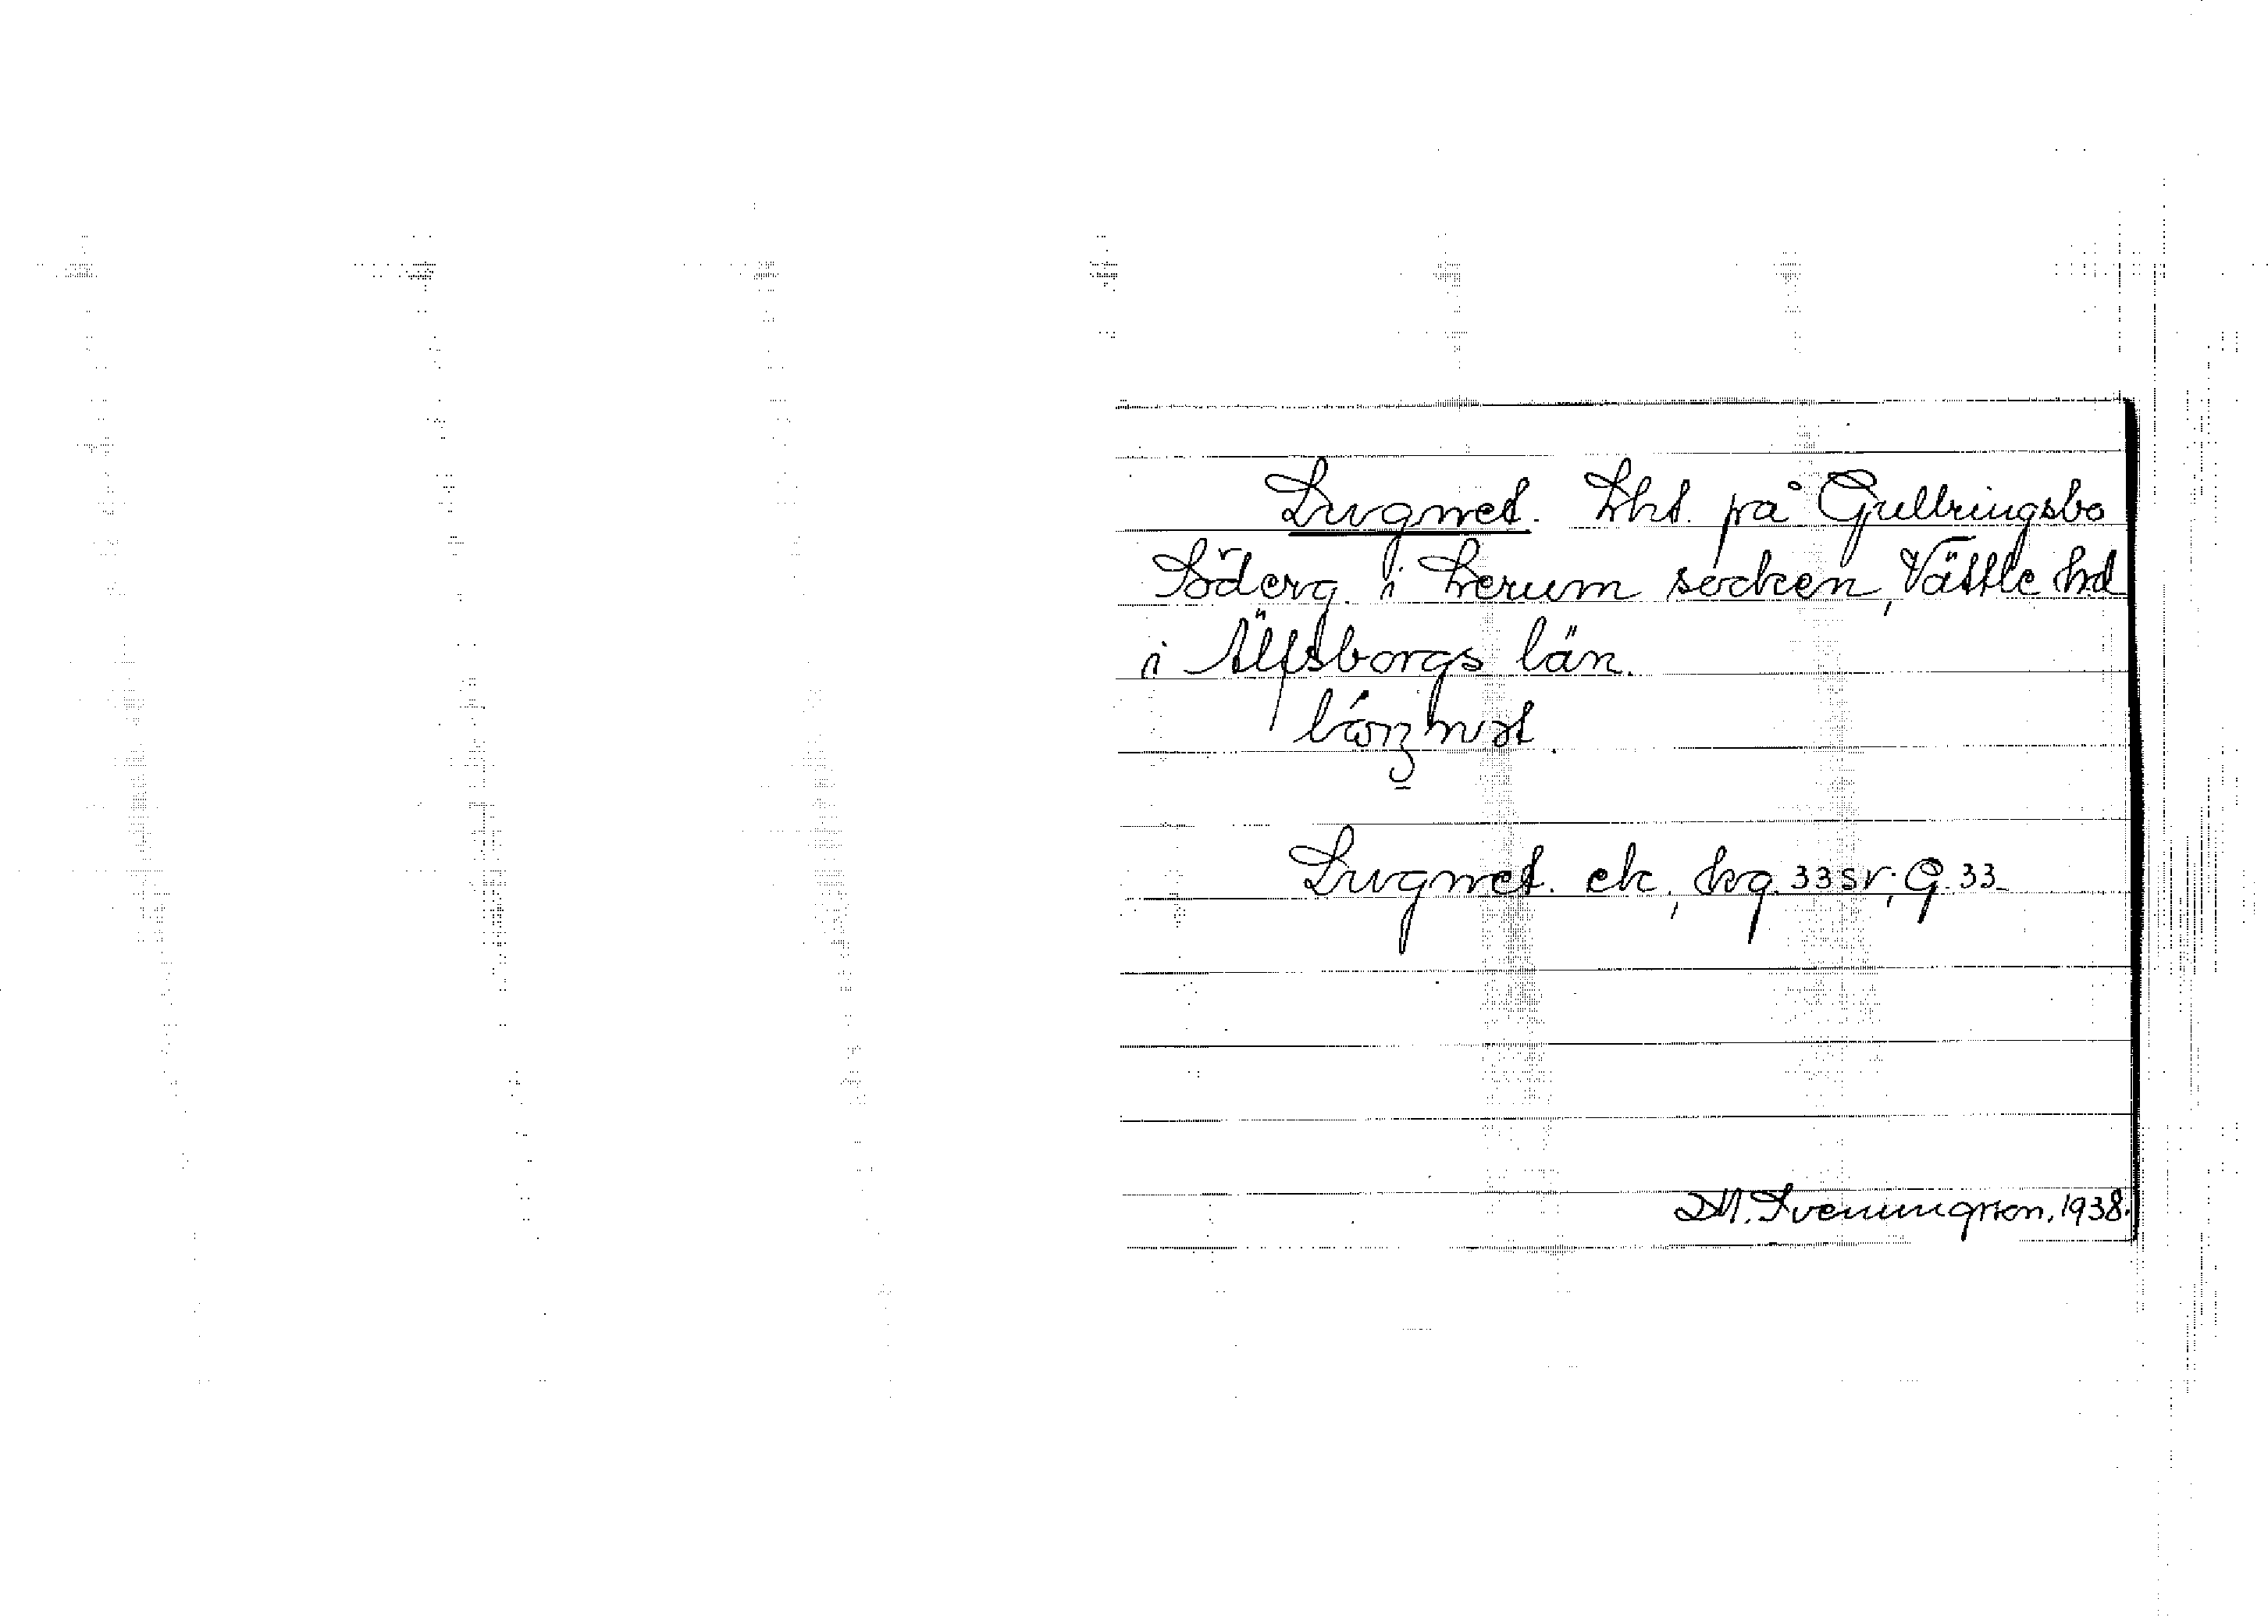 Lugnet. Lht. på Gullringsbo
Söderg. i Lerum socken, Vättle hd
i Älfsborgs län.
Lugnet. ek, kg. 33 sr; G. 33
M. Sveningsson, 1938.